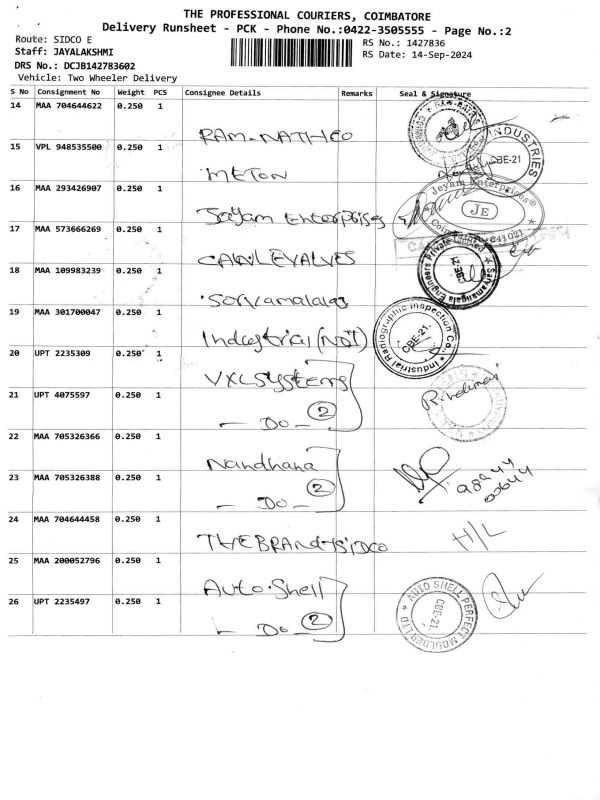 THE PROFESSIONAL COURIERS, COIMBATORE
Delivery Runsheet - PCK - Phone No.:0422-3505555 - Page No.:2
Route: SIDCO E
RS No.: 1427836
Staff: JAYALAKSHMI
RS Date: 14-Sep-2024
DRS No.: DCJB142783602
Vehicle: Two Wheeler Delivery
S No Consignment No Weight PCS Consignee Details Remarks Seal & Signature
14 MAA 704644622 0.250 1
RAM-NATH CO
15 VPL 948535500 0.250 1
METON
INDUSTRIES
CBE-21
16 MAA 293426907 0.250 1
Jayam Enterprises
Jeyam Enterprises®
JE
Coimbatore 641 021
17 MAA 573666269 0.250 1
18 MAA 109983239 0.250 1
Satyamangala Engineers Private Limited
CBE-21
19 MAA 301700047 0.250 1
Industrial (NDT)
Industrial Radiographic Inspection Co.,
CBE-21.
20 UPT 2235309 0.250 1
VXL Systems
21 UPT 4075597 0.250 1
- Do - 2
22 MAA 705326366 0.250 1
Nandhana
23 MAA 705326388 0.250 1
- Do - 2
24 MAA 704644458 0.250 1
H/L
25 MAA 200052796 0.250 1
Auto Shell
26 UPT 2235497 0.250 1
- Do - 2
AUTO SHELL PERFECT MOULDER LTD
CBE-21.